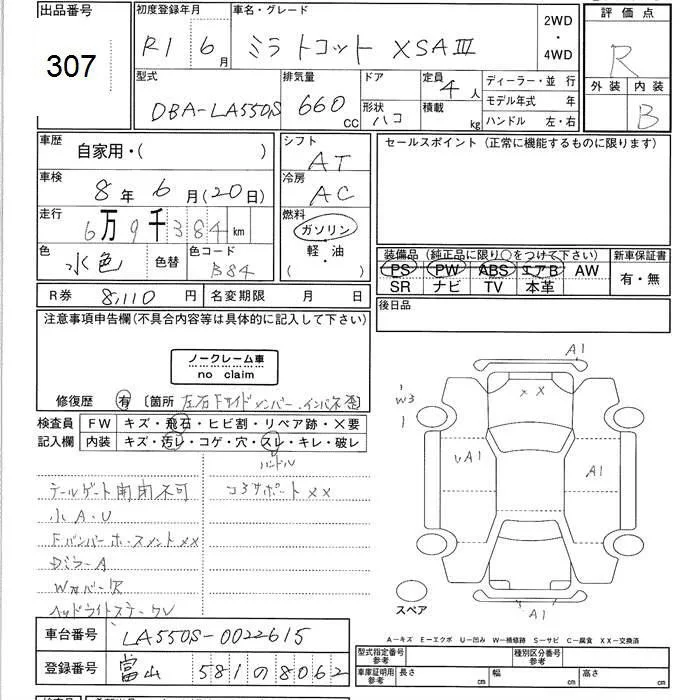 出品番号
307
初度登録年月
R1 6月
車名・グレード
ミラトコット XSAⅢ
2WD
・
4WD
評価点
R
外装 内装
B
型式
DBA-LA550S
排気量
660 CC
ドア
形状
ハコ
定員
4人
積載
kg
ディーラー・並行
モデル年式 年
ハンドル 左・右
車歴
自家用・( )
車検
8年 6月(20日)
走行
6万9千384km
色
水色
色替
色コード
B84
シフト
AT
冷房
AC
燃料
ガソリン
軽・油
( )
セールスポイント(正常に機能するものに限ります)
装備品(純正品に限り○をつけて下さい)
PS PW ABS エアB AW
SR ナビ TV 本革
新車保証書
有・無
後日品
R券 8,110円
名変期限 月 日
注意事項申告欄(不具合内容等は具体的に記入して下さい)
ノークレーム車
no claim
修復歴 有 〔箇所 左右Fサイドメンバー、インパネ歪
検査員
記入欄
FW キズ・飛石・ヒビ割・リペア跡・×要
内装 キズ・汚レ・コゲ・穴・スレ・キレ・破レ
ハンドル
テールゲート開閉不可
小A・U
Fバンパーホースメント××
DミラーA
Wカバー欠
ヘッドライトステークレ
コアサポート××
A1
××
W3
A1
A1
A1
スペア
A-キズ E-エクボ U-凹み W-補修跡 S-サビ C-腐食 XX-交換済
車台番号 LA550S-0022615
登録番号 富山 581 の 8062
型式指定番号
参考
種別区分番号
参考
車庫証明用
参考
長さ cm
幅 cm
高さ cm